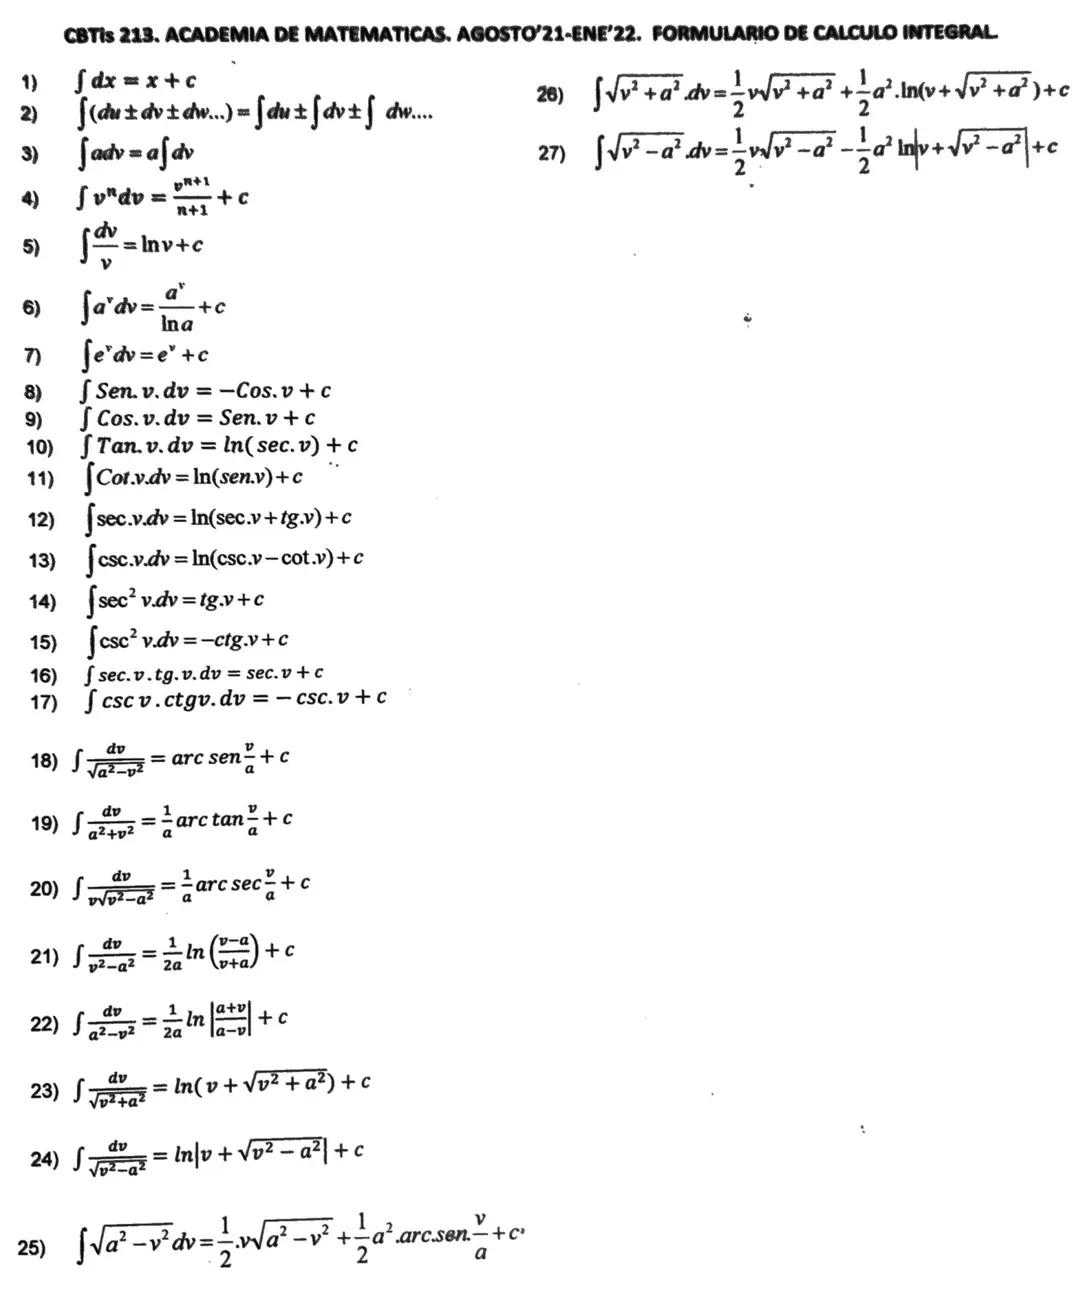 CBTis 213. ACADEMIA DE MATEMATICAS. AGOSTO'21-ENE'22. FORMULARIO DE CALCULO INTEGRAL
1) ∫ dx = x + c
2) ∫(du ± dv ± dw...) = ∫du ± ∫dv ± ∫ dw....
3) ∫adv = a∫dv
4) ∫ vⁿdv = vⁿ⁺¹/(n+1) + c
5) ∫dv/v = ln v + c
6) ∫aᵛdv = aᵛ/ln a + c
7) ∫eᵛdv = eᵛ + c
8) ∫ Sen. v. dv = −Cos. v + c
9) ∫ Cos. v. dv = Sen. v + c
10) ∫ Tan. v. dv = ln( sec. v) + c
11) ∫Cot.v.dv = ln(sen.v) + c
12) ∫sec.v.dv = ln(sec.v + tg.v) + c
13) ∫csc.v.dv = ln(csc.v − cot.v) + c
14) ∫sec² v.dv = tg.v + c
15) ∫csc² v.dv = −ctg.v + c
16) ∫ sec. v . tg. v. dv = sec. v + c
17) ∫ csc v . ctgv. dv = − csc. v + c
18) ∫ dv/√(a²−v²) = arc sen v/a + c
19) ∫ dv/(a²+v²) = 1/a arc tan v/a + c
20) ∫ dv/(v√(v²−a²)) = 1/a arc sec v/a + c
21) ∫ dv/(v²−a²) = 1/2a ln ((v−a)/(v+a)) + c
22) ∫ dv/(a²−v²) = 1/2a ln |(a+v)/(a−v)| + c
23) ∫ dv/√(v²+a²) = ln( v + √(v² + a²)) + c
24) ∫ dv/√(v²−a²) = ln|v + √(v² − a²)| + c
25) ∫√(a² − v²) dv = 1/2 .v√(a² − v²) + 1/2 a².arc.sen. v/a + c
26) ∫√(v² + a²) .dv = 1/2 v√(v² + a²) + 1/2 a².ln(v + √(v² + a²)) + c
27) ∫√(v² − a²) .dv = 1/2 v√(v² − a²) − 1/2 a² ln|v + √(v² − a²)| + c